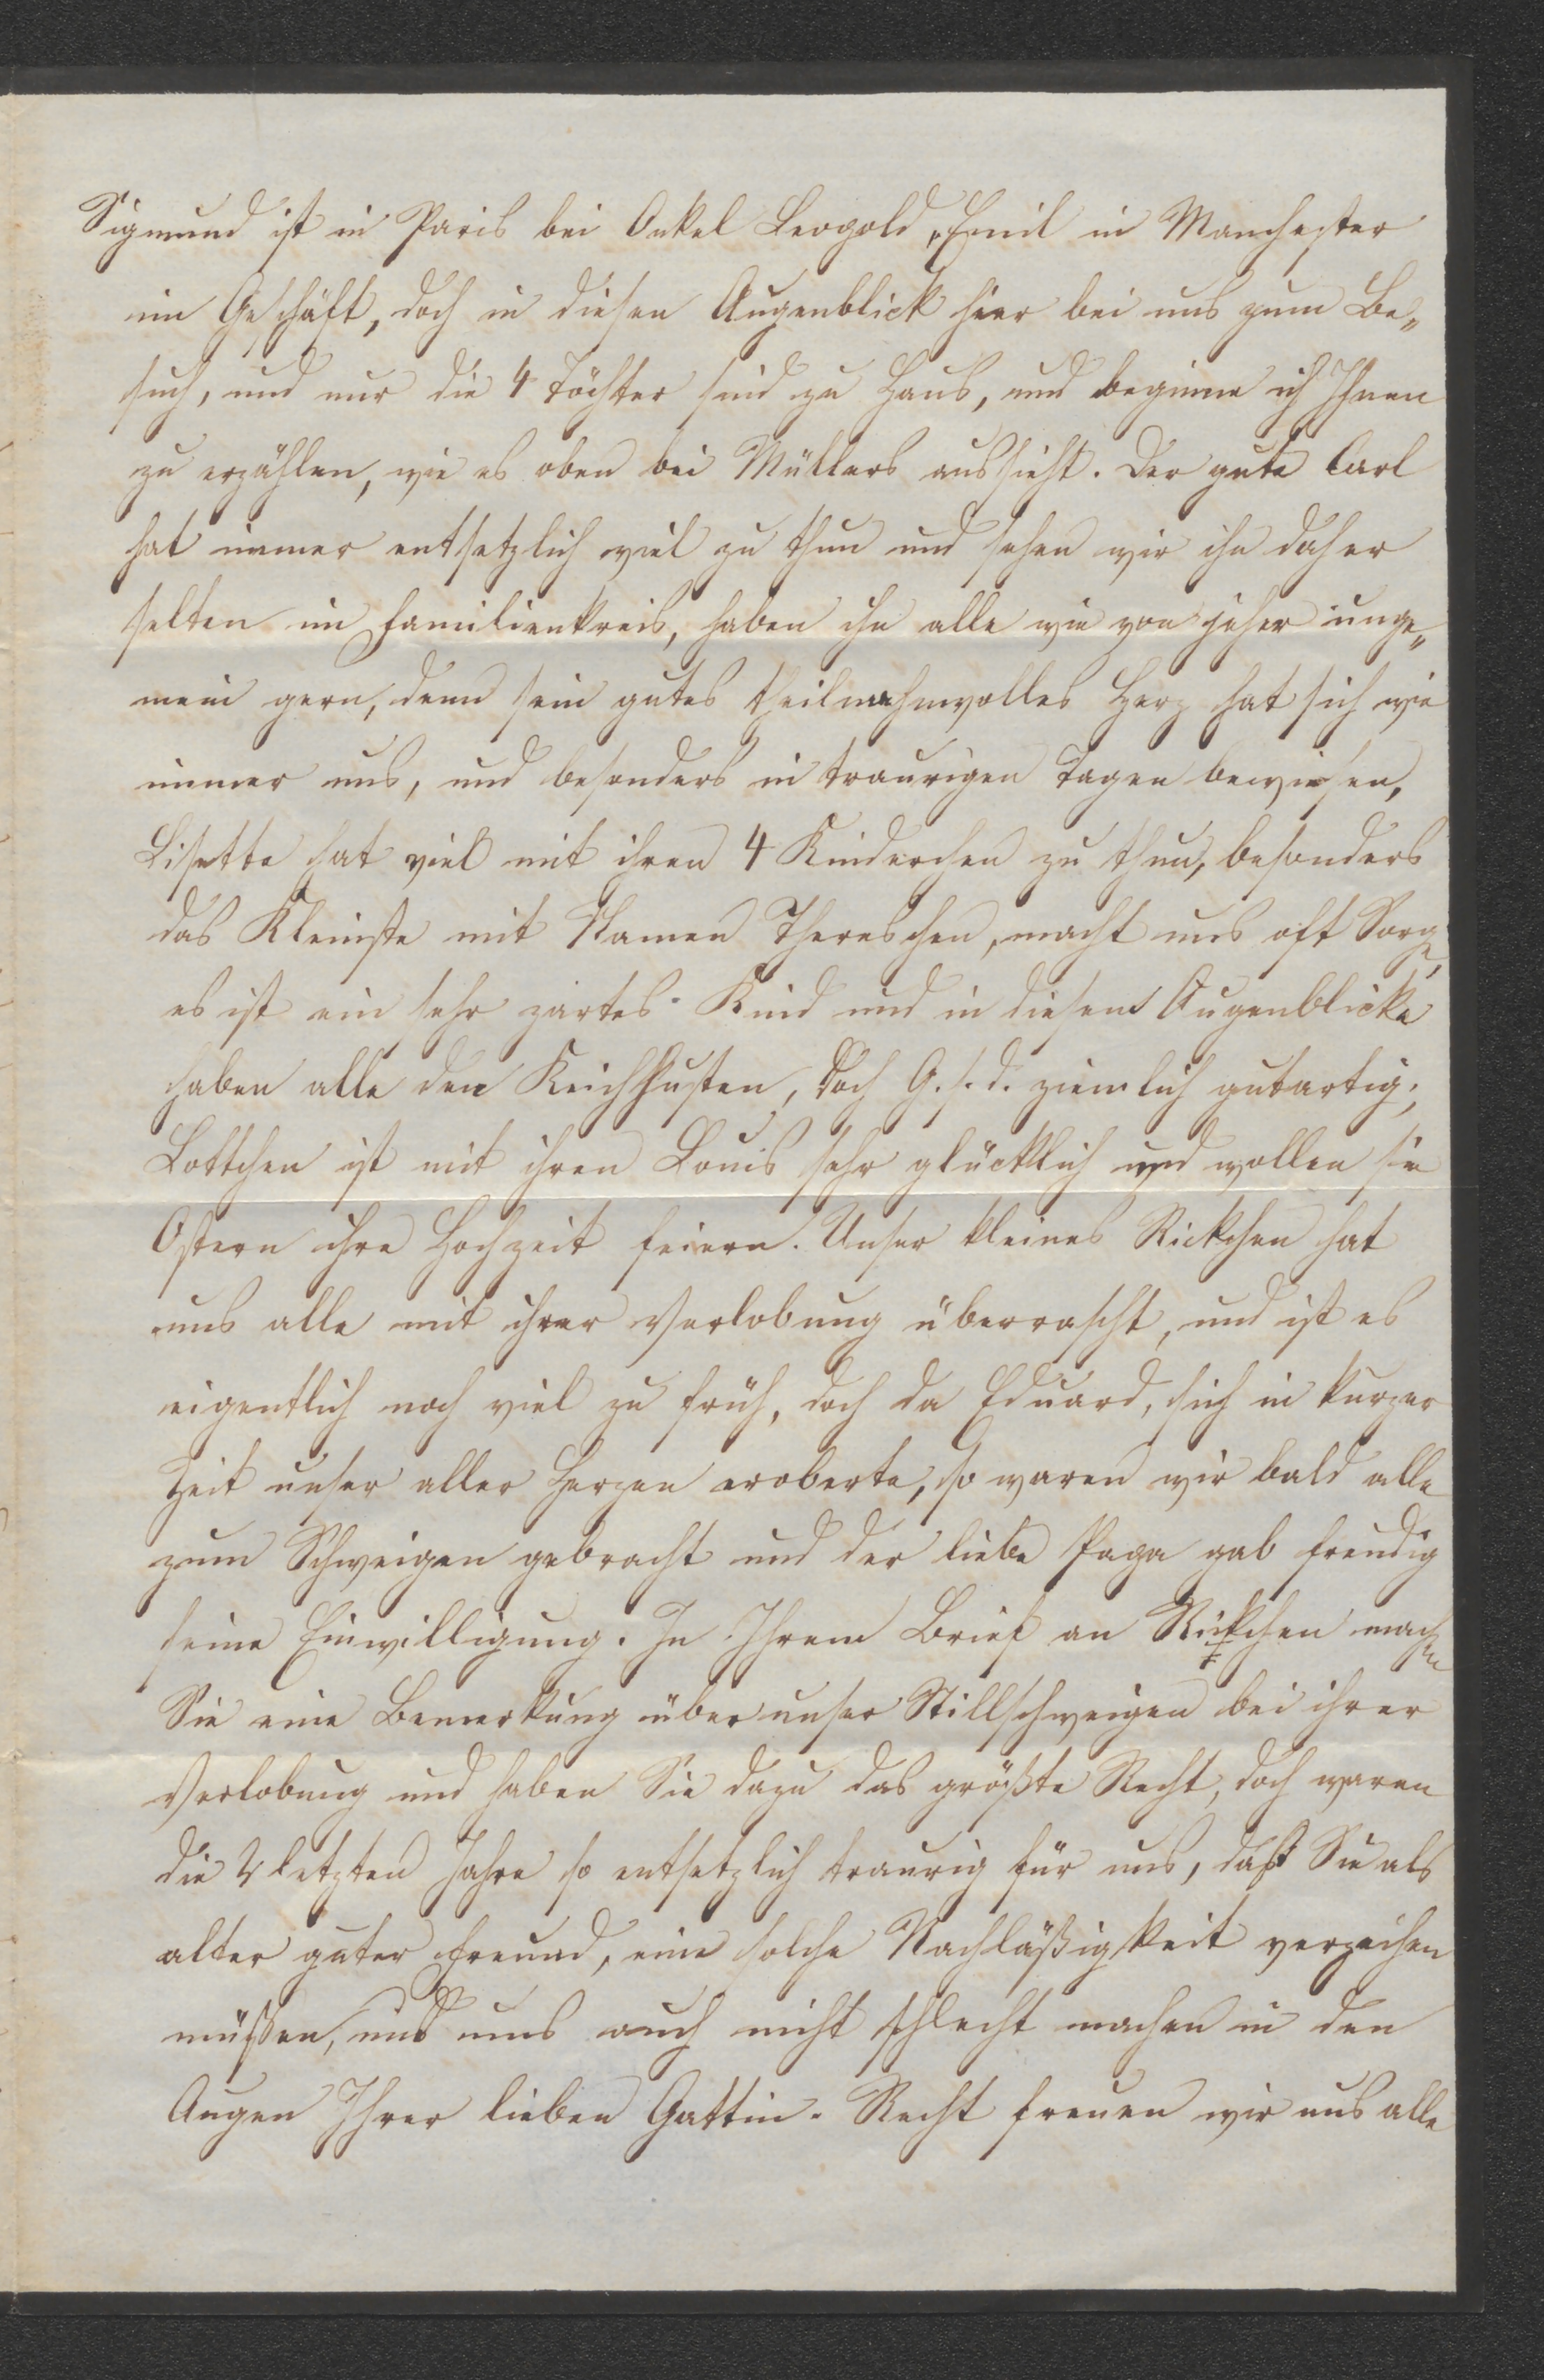 Sigmund ist in Paris bei Onkel Leopold, Emil in Manchester
im Geschäft, doch in diesen Augenblick hier bei uns zum Be„
such, und nur die 4 Töchter sind zu Haus, und beginne ich Ihnen
zu erzählen, wie es oben bei Müllers aussieht. Der gute Carl
hat immer entsetzlich viel zu thun und sehen wir ihn daher
selten im Familienkreis, haben ihn alle wie von jeher unge„
mein gern, denn sein gutes theilnahmvolles Herz hat sich wie
immer uns, und besonders in traurigen Tagen bewiesen,
Lisette hat viel mit ihren 4 Kinderchen zu thun, besonders
das Kleinste mit Namen Thereschen, macht uns oft Sorge,
es ist ein sehr zartes Kind und in diesem Augenblicke
haben alle den Keichhusten, doch G. s. d. ziemlich gutartig;
Lottchen ist mit ihren Louis sehr glücklich und wollen sie
Ostern ihre Hochzeit feiern. Unser kleines Rickchen hat
uns alle mit ihrer Verlobung überrascht, und ist es
eigentlich noch viel zu früh, doch da Eduard, sich in kurzer
Zeit unser aller Herzen eroberte, so waren wir bald alle
zum Schweigen gebracht und der liebe Papa gab freudig
seine Einwilligung. In Ihrem Brief an Rickchen machen
Sie eine Bemerkung über unser Stillschweigen bei ihrer
Verlobung und haben Sie dazu das größte Recht, doch waren
die 2 letzten Jahre so entsetzlich traurig für uns, daß Sie als
alter guter Freund, eine solche Nachläßigkeit verzeihen
müßen, und uns auch nicht schlecht machen in den
Augen Ihrer lieben Gattin. Recht freuen wir uns alle